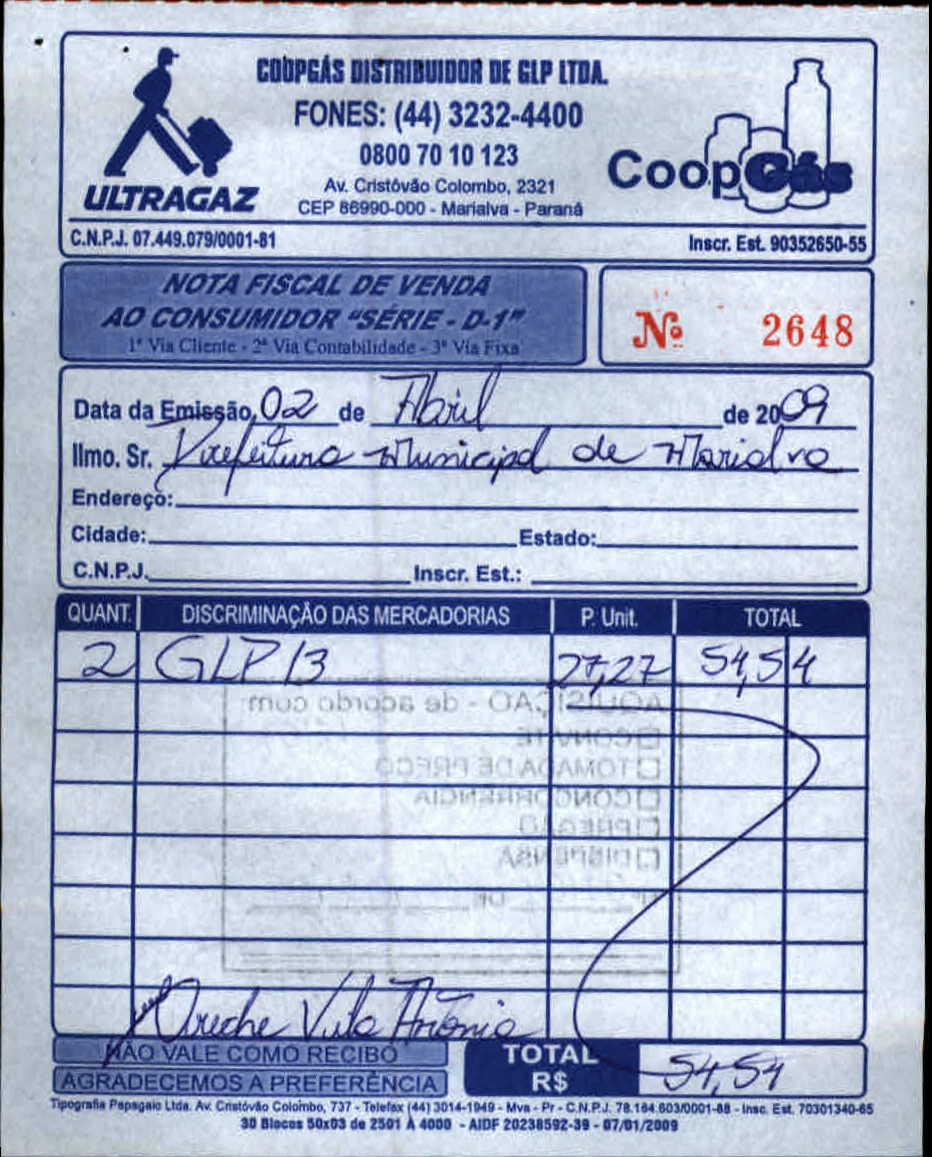 COOPGÁS DISTRIBUIDOR DE GLP LTDA.
FONES: (44) 3232-4400
0800 70 10 123
Av. Cristóvão Colombo, 2321
CEP 86990-000 - Marialva - Paraná
ULTRAGAZ
CoopGás
C.N.P.J. 07.449.079/0001-81
Inscr. Est. 90352650-55
NOTA FISCAL DE VENDA
AO CONSUMIDOR "SÉRIE - D-1"
1ª Via Cliente - 2ª Via Contabilidade - 3ª Via Fixa
Nº 2648
Data da Emissão, 02 de Abril de 2009
Ilmo. Sr. Prefeitura Municipal de Marialva
Endereço:
Cidade: Estado:
C.N.P.J. Inscr. Est.:
QUANT. DISCRIMINAÇÃO DAS MERCADORIAS P. Unit. TOTAL
2 GLP 13 27,27 54,54
AQUISIÇÃO - de acordo com:
CONVITE
TOMADA DE PREÇO
CONCORRÊNCIA
PREGÃO
DISPENSA
DE
Creche Vila Antonio
NÃO VALE COMO RECIBO
AGRADECEMOS A PREFERÊNCIA
TOTAL
R$ 54,54
Tipografia Papagaio Ltda. Av. Cristóvão Colombo, 737 - Telefax (44) 3014-1949 - Mva - Pr - C.N.P.J. 78.184.603/0001-88 - Insc. Est. 70301340-65
30 Blocos 50x03 de 2501 À 4000 - AIDF 20238592-39 - 07/01/2009